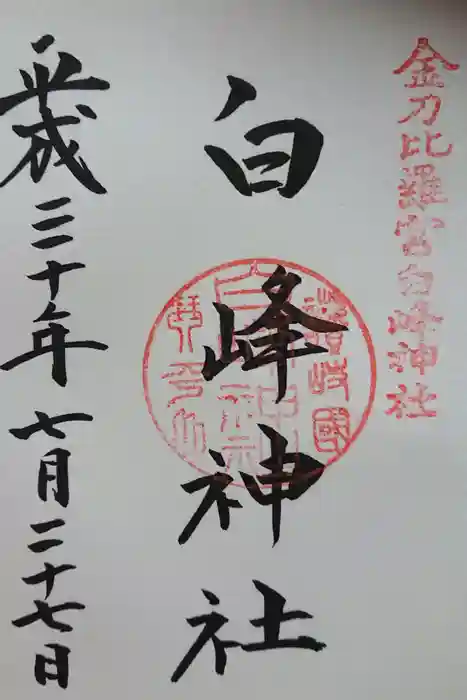 金刀比羅宮白峰神社
白峰神社
讃岐國
白峰神社
平成三十年七月二十七日